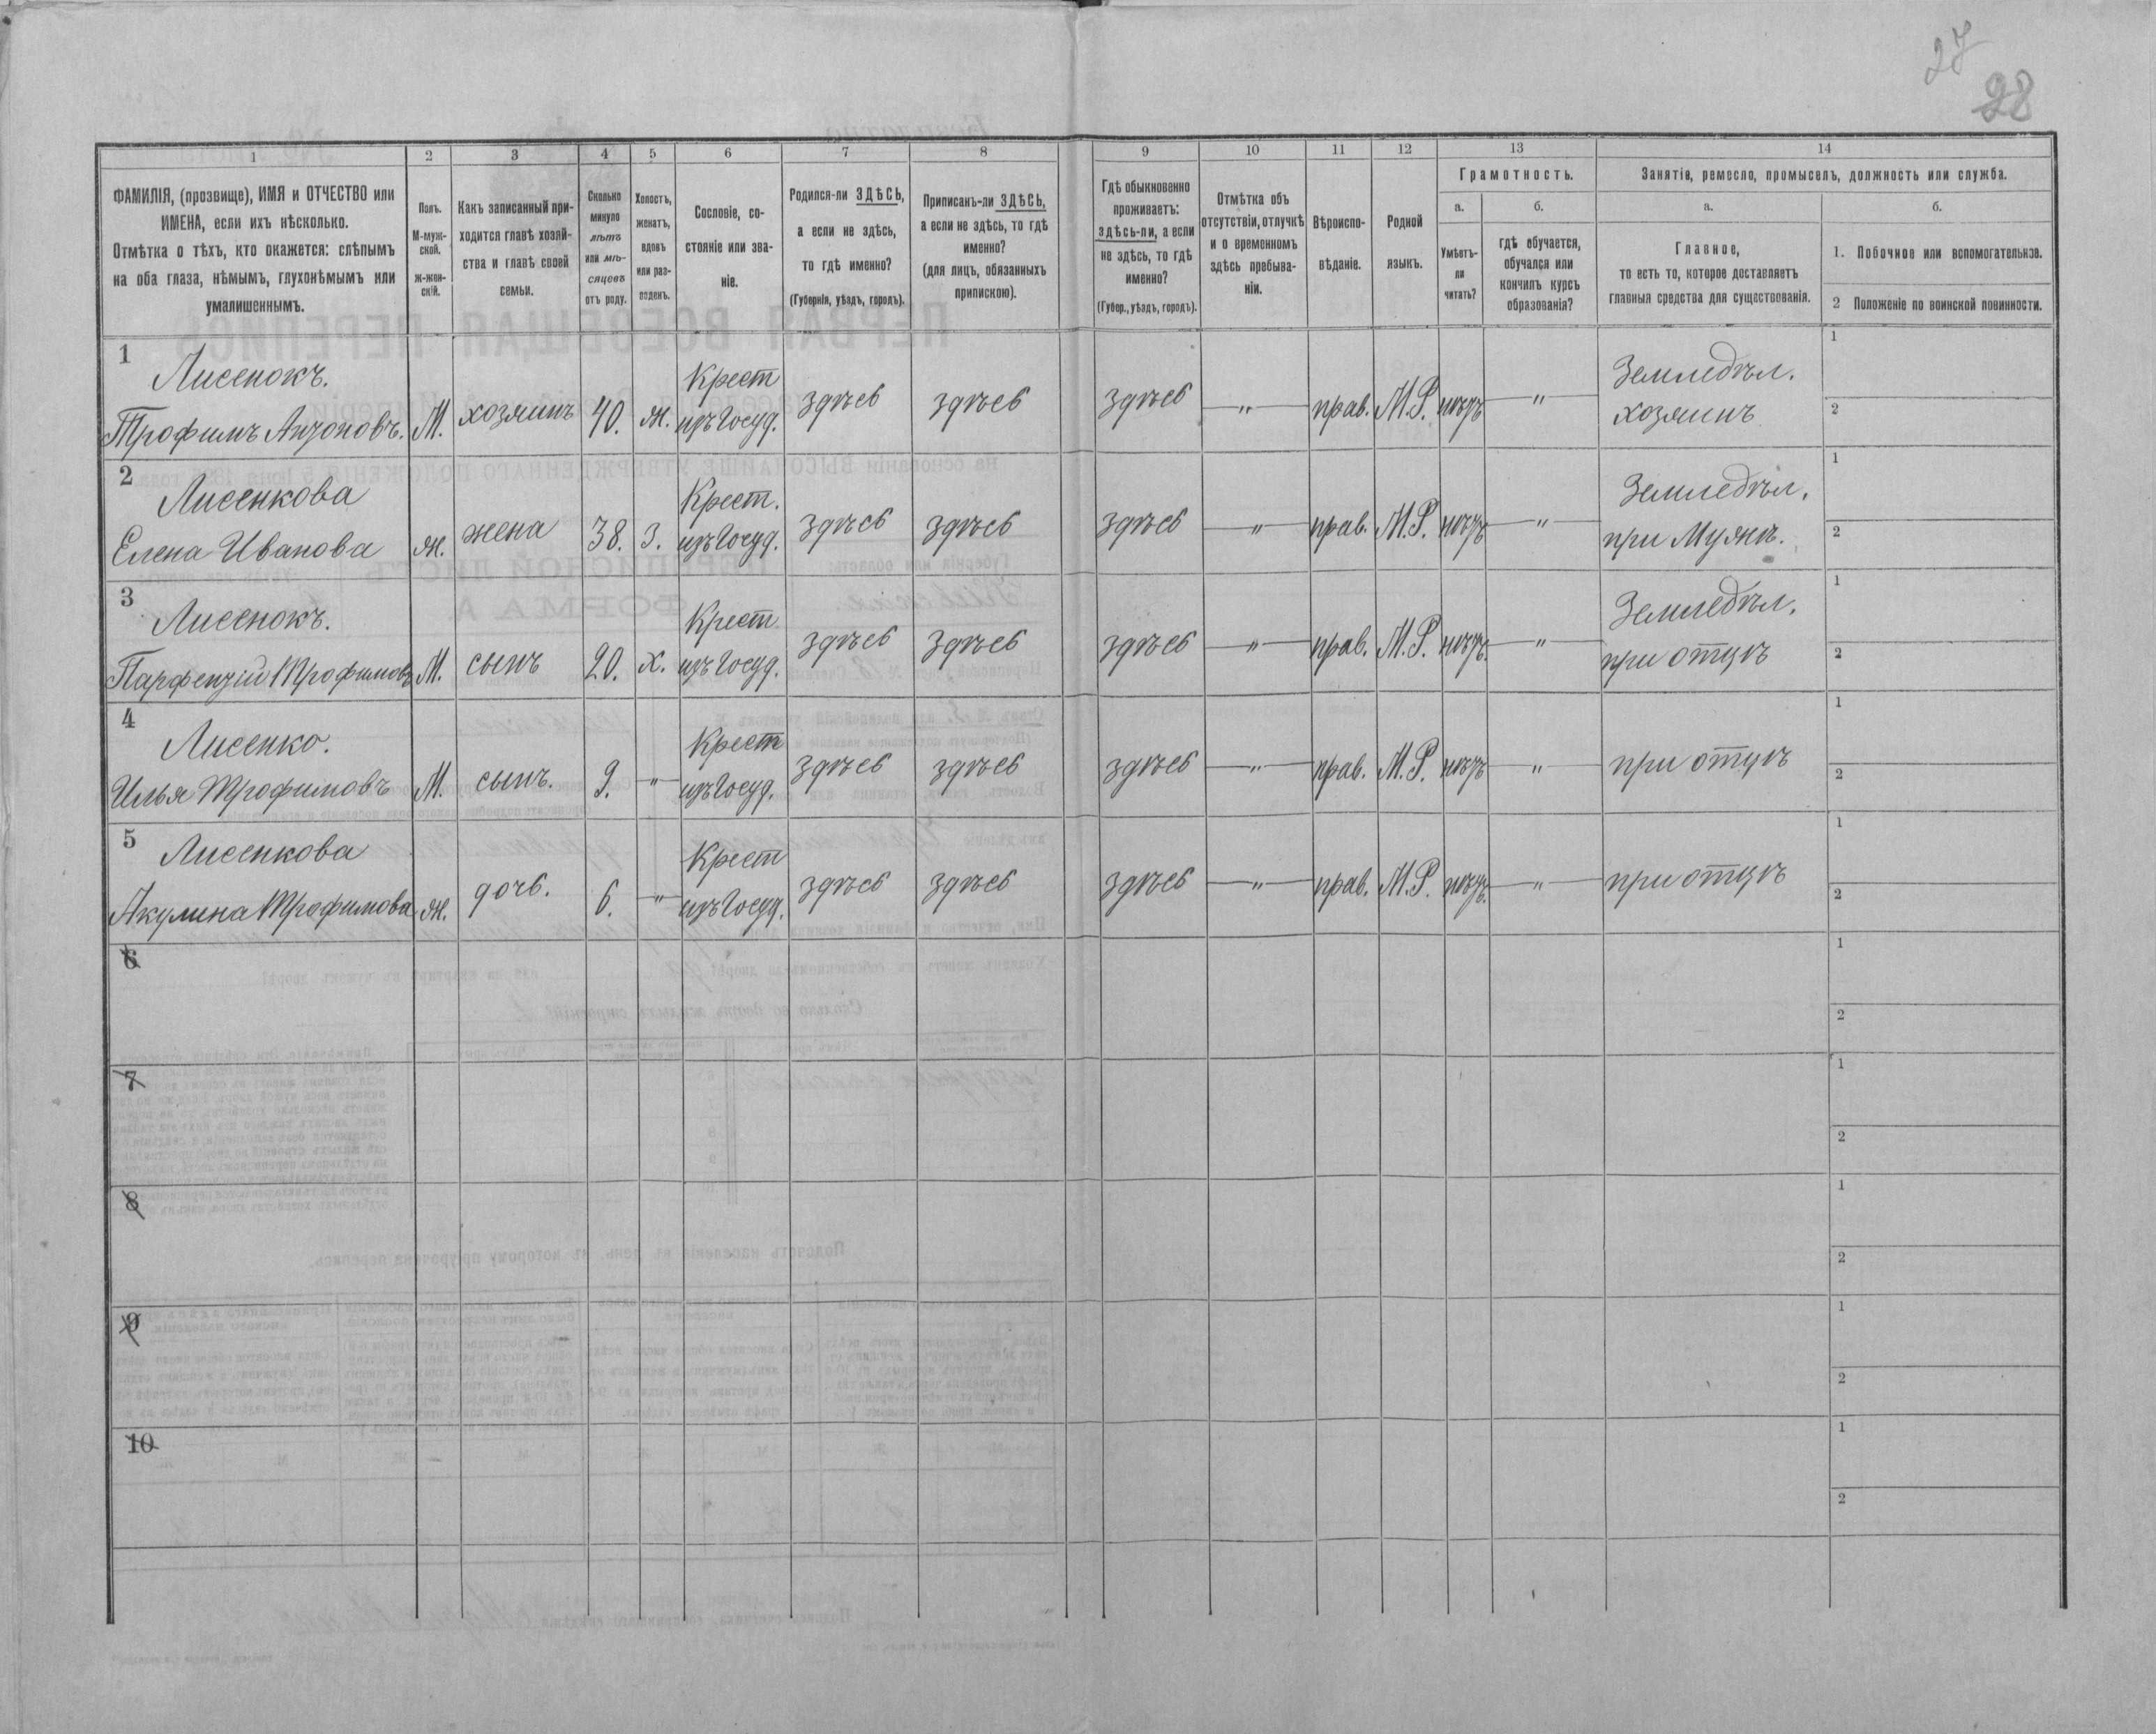 27
28
1 2 3 4 5 6 7 8 9 10 11 12 13 14
ФАМИЛІЯ, (прозвище), ИМЯ и ОТЧЕСТВО или
ИМЕНА, если ихъ нѣсколько.
Отмѣтка о тѣхъ, кто окажется: слѣпымъ
на оба глаза, нѣмымъ, глухонѣмымъ или
умалишеннымъ.
Полъ.
М-муж-
ской.
ж-жен-
скій.
Какъ записанный при-
ходится главѣ хозяй-
ства и главѣ своей
семьи.
Сколько
минуло
лѣтъ
или мѣ-
сяцевъ
отъ роду.
Холостъ,
женатъ,
вдовъ
или раз-
веденъ.
Сословіе, со-
стояніе или зва-
ніе.
Родился-ли ЗДѢСЬ,
а если не здѣсь,
то гдѣ именно?
(Губернія, уѣздъ, городъ).
Приписанъ-ли ЗДѢСЬ,
а если не здѣсь, то гдѣ
именно?
(для лицъ, обязанныхъ
припискою).
Гдѣ обыкновенно
проживаетъ:
здѣсь-ли, а если
не здѣсь, то гдѣ
именно?
(Губер., уѣздъ, городъ).
Отмѣтка объ
отсутствіи, отлучкѣ
и о временномъ
здѣсь пребыва-
ніи.
Вѣроиспо-
вѣданіе.
Родной
языкъ.
Грамотность.
а.
Умѣетъ-
ли
читать?
б.
гдѣ обучается,
обучался или
кончилъ курсъ
образованія?
Занятіе, ремесло, промыселъ, должность или служба.
а.
Главное,
то есть то, которое доставляетъ
главныя средства для существованія.
б.
1. Побочное или вспомогательное.
2 Положеніе по воинской повинности.
1 Лисенокъ. Крест Земледѣл. 1
Трофимъ Антоновъ. М. хозяинъ 40. ж. изъ Госуд. здѣсь здѣсь здѣсь —"— прав. М.Р. нѣтъ —"— хозяинъ 2
2 Лисенкова Крест. Земледѣл. 1
Елена Иванова ж. жена 38. З. изъ Госуд. здѣсь здѣсь здѣсь —"— прав. М.Р. нѣтъ —"— при Мужѣ. 2
3 Лисенокъ. Крест Земледѣл. 1
Парфентій Трофимовъ М. сынъ 20. х. изъ Госуд. здѣсь здѣсь здѣсь —"— прав. М.Р. нѣтъ. —"— при отцѣ 2
4 Лисенко. Крест 1
Илья Трофимовъ М. сынъ. 9. —"— изъ Госуд. здѣсь здѣсь здѣсь —"— прав. М.Р. нѣтъ —"— при отцѣ 2
5 Лисенкова Крест 1
Акулина Трофимова ж. дочь. 6. —"— изъ Госуд. здѣсь здѣсь здѣсь —"— прав. М.Р. нѣтъ. —"— при отцѣ 2
6 1
2
7 1
2
8 1
2
9 1
2
10 1
2